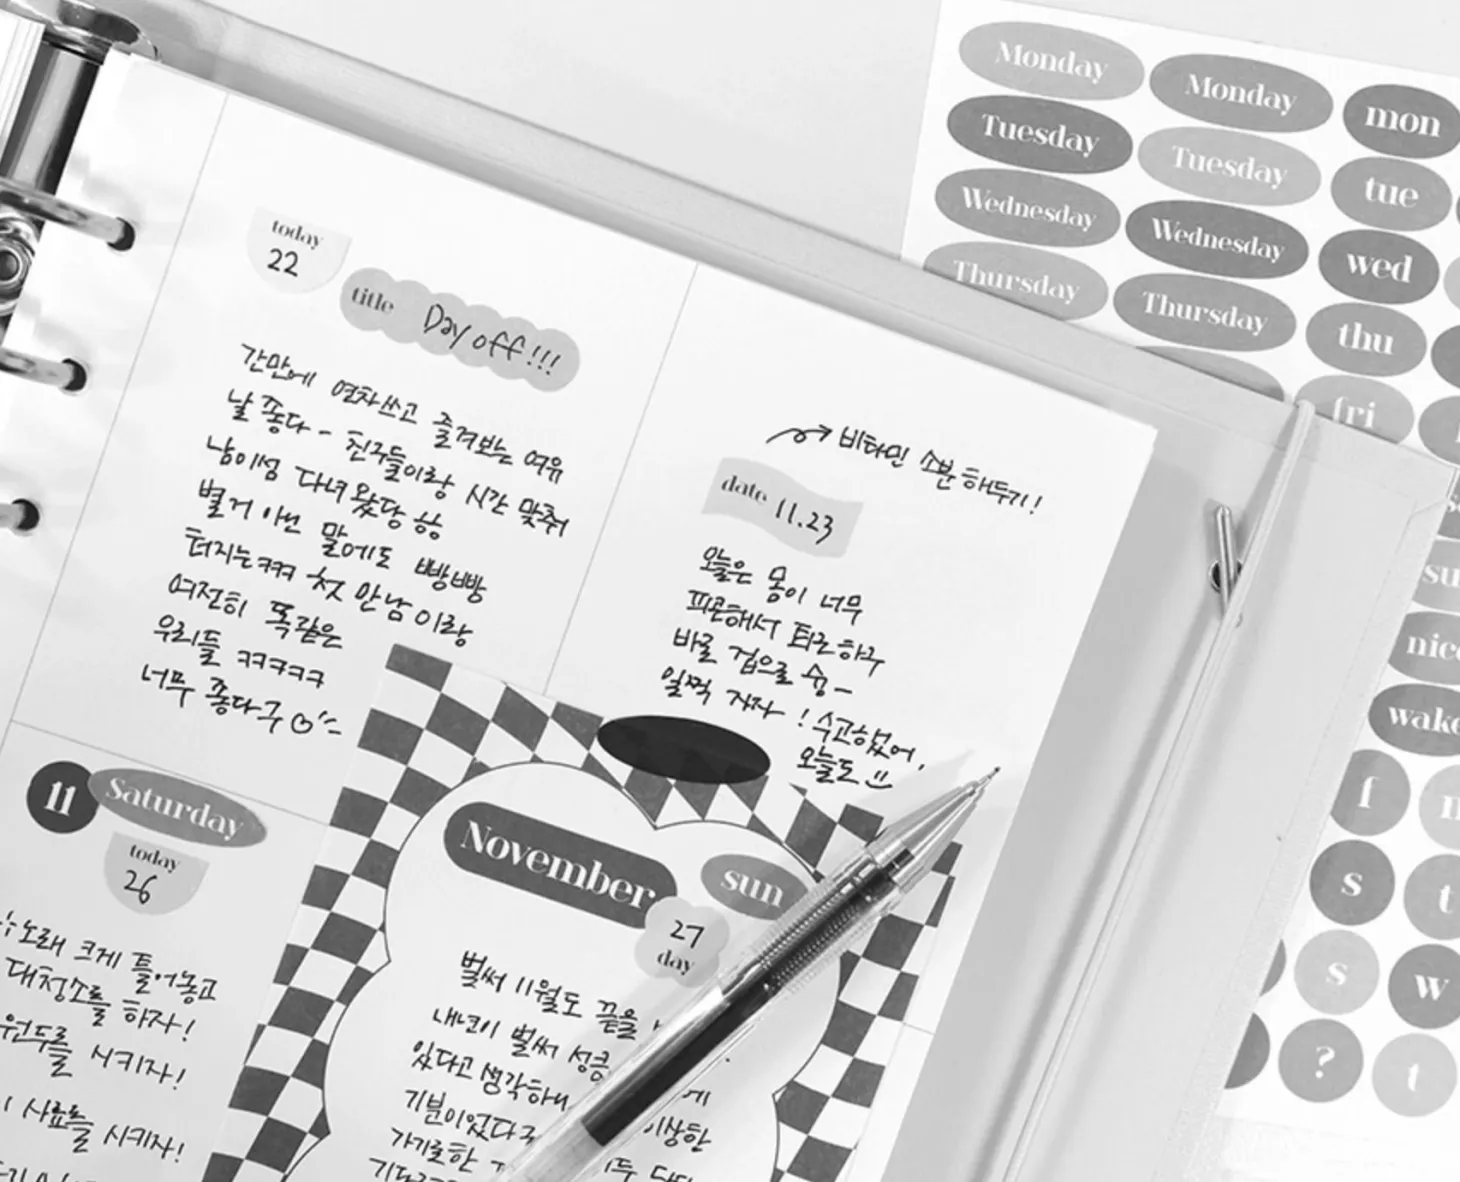 today
22
title Day off!!!
간만에 연차쓰고 즐겨보는 여유
날 좋다~ 친구들이랑 시간 맞춰
남이섬 다녀왔당
별거 아닌 말에도 빵빵
터지는ㅋㅋㅋ 첫 만남이랑
여전히 똑같은
우리들 ㅋㅋㅋㅋㅋ
너무 좋다구
비타민 소분 해두기!
date 11.23
오늘은 몸이 너무
피곤해서 퇴근하구
바로 집으로 슝~
일찍 자자! 수고했어,
오늘도
11 Saturday
today
26
노래 크게 틀어놓고
대청소를 하자!
원두를 시키자!
사료를 시키자!
November sun
27
day
벌써 11월도 끝을
내년이 벌써 성큼
있다고 생각하니
기분이었다구 이상한
Monday Monday mon
Tuesday Tuesday tue
Wednesday Wednesday wed
Thursday Thursday thu
fri
su
nic
wake
f
s t
s w
? t